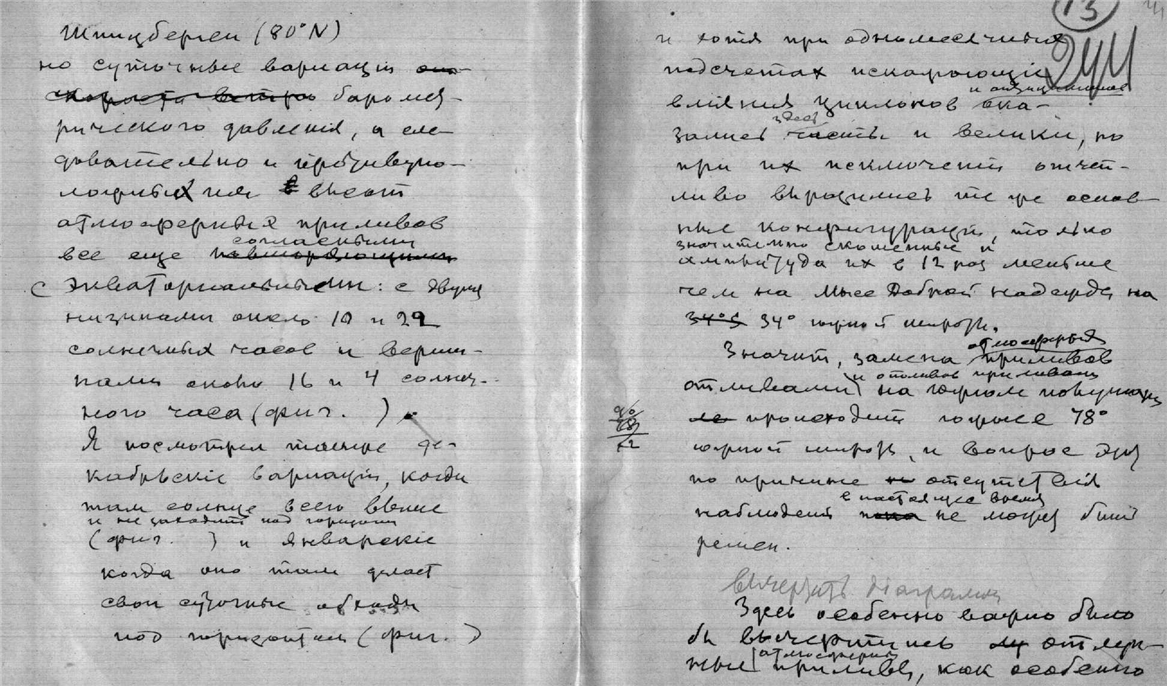 Шпицберген (80°N)
но суточные вариации
скорости ветра баромет-
рического давления, а сле-
довательно и противупо-
ложных им высот
атмосферных приливов
согласными
все еще
с экваториальными: с двумя
низинами около 10 и 22
солнечных часов и верши-
нами около 16 и 4 солнеч-
ного часа (фиг. )
Я посмотрел также де-
кабрьскіе вариаціи, когда
там солнце всего выше
и не заходит под горизонт
(фиг. ) и январскіе
когда оно там делает
свои суточные обходы
под горизонтом (фиг. )
13
244
и хотя при одномесячных
подсчетах искажающія
и антициклонов
вліянія циклонов ока-
здесь
зались часты и велики, но
при их исключеніи отчет-
ливо выразились те же основ-
ные конфигураціи, только
значительно скошенные и
амплитуда их в 12 раз меньше
чем на Мысе Доброй надежды на
34°S 34° южной широты.
атмосферных
Значит, замена приливов
и отливов приливами
отливами на южном полушаріи
происходит южнее 78°
южной широты, и вопрос этот
по причине отсутствія
в настоящее время
наблюденій пока не может быть
решен.
90
78
12
Вычертить діаграммы
Здесь особенно важно было
бы вычертить
атмосферные
ные приливы, как особенно